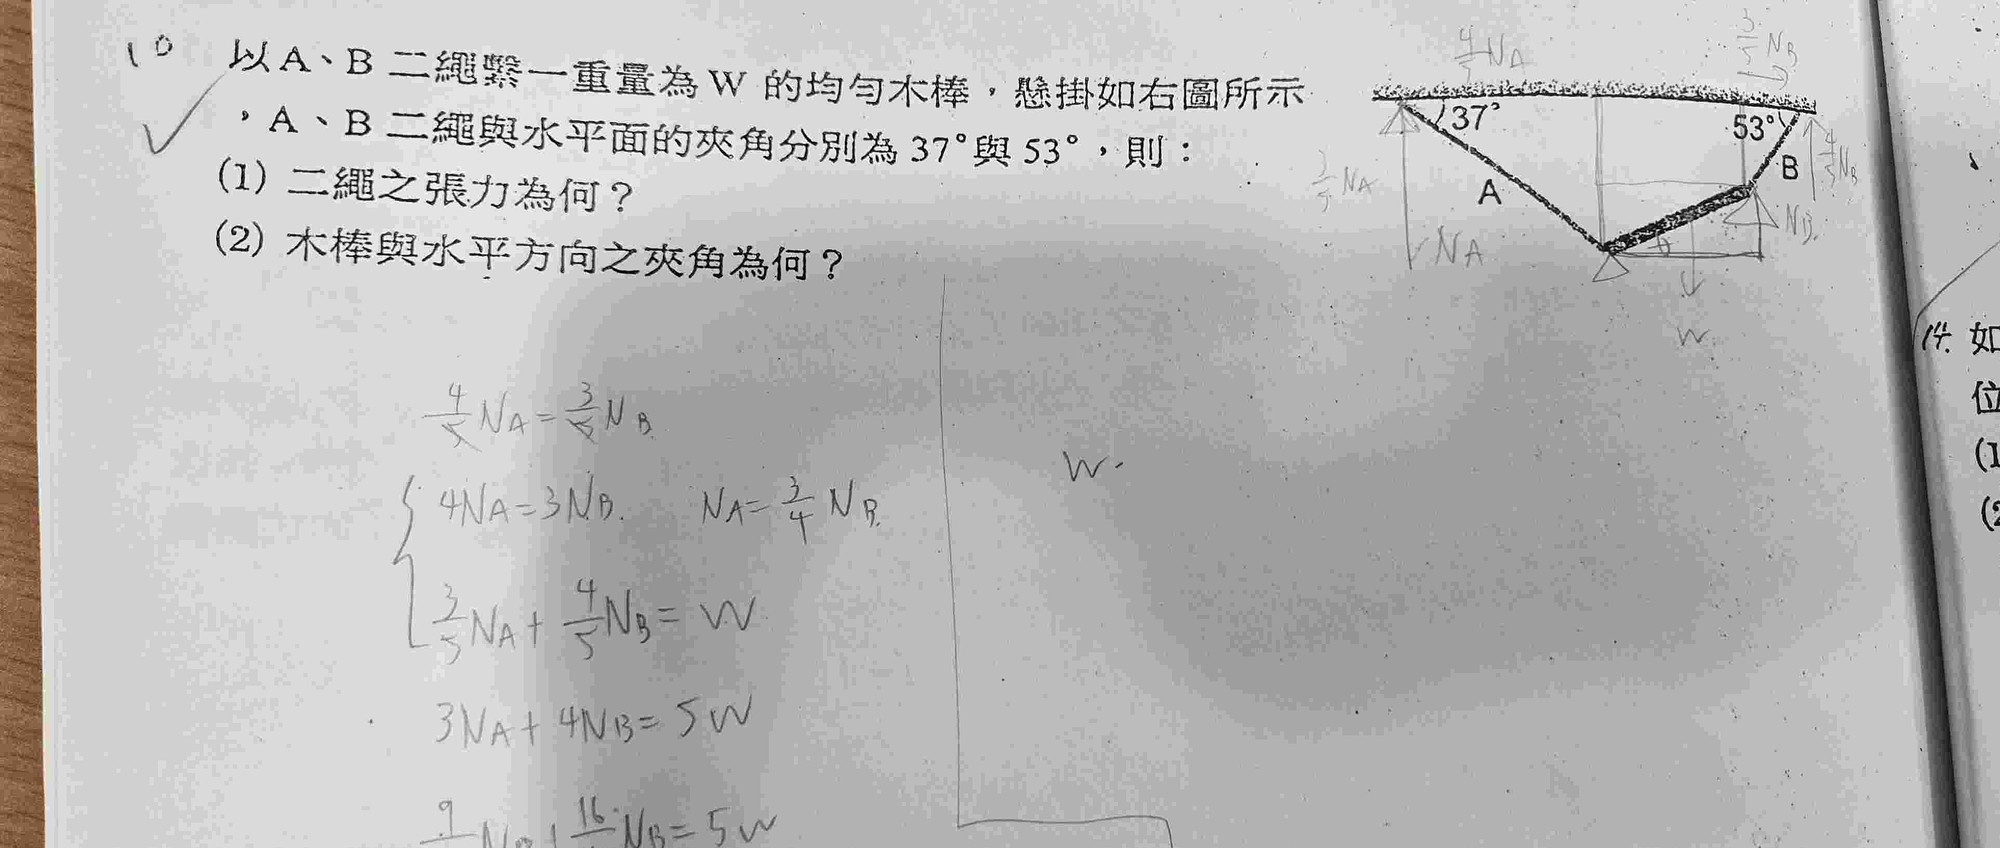 10 以A、B二繩繫一重量為W的均勻木棒,懸掛如右圖所示
,A、B二繩與水平面的夾角分別為37°與53°,則:
(1) 二繩之張力為何?
(2) 木棒與水平方向之夾角為何?
4/5 NA
3/5 NB
37°
53°
A
B
3/5 NA
4/5 NB
NA
NB.
θ
W.
4/5 NA = 3/5 NB
4NA = 3NB. NA = 3/4 NB.
3/5 NA + 4/5 NB = W
3NA + 4NB = 5W
NB = 5W
W.
14. 如
位
(1
(2